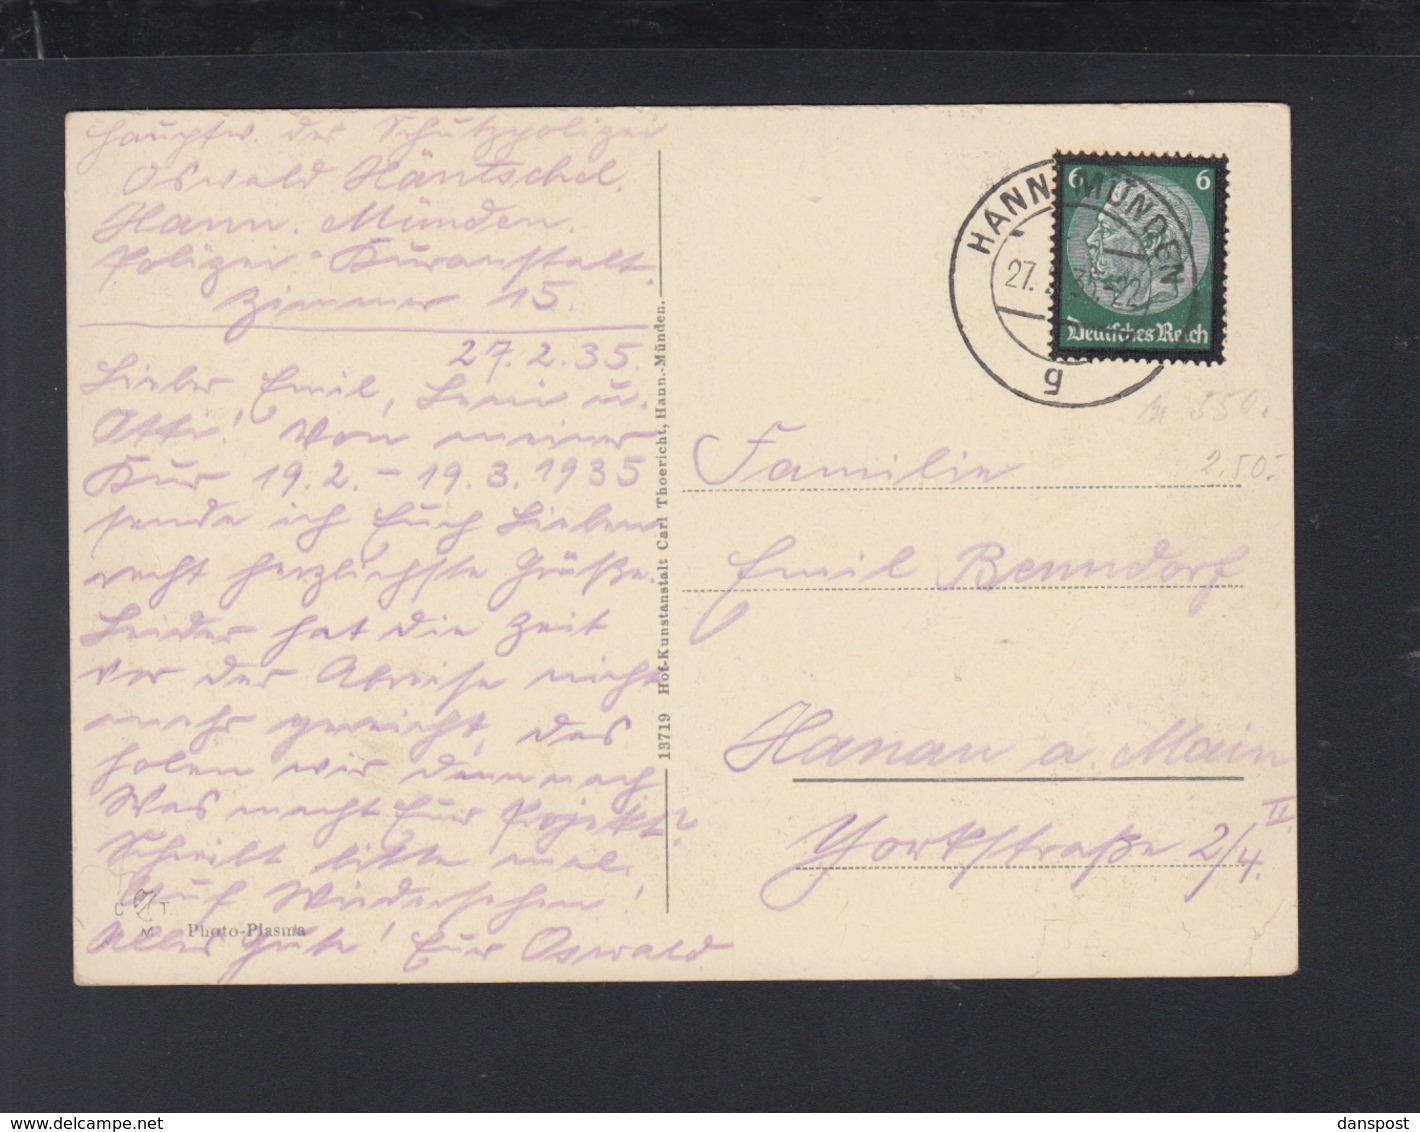 Hauptw. der Schutzpolizei
Oswald Häntschel.
Hann. Münden.
Polizei-Kuranstalt.
Zimmer 15.
27.2.35.
Lieber Emil, Leni u.
Otti! Von meiner
Kur 19.2. - 19.3.1935
sende ich Euch Lieben
recht herzlichste Grüße.
Leider hat die Zeit
vor der Abreise nicht
mehr gereicht, das
holen wir dann nach
Was macht Euer Projekt?
Schreibt bitte mal.
Auf Wiedersehen!
Alles Gute! Euer Oswald.
C T
M
Photo-Plasma
13719 Hof-Kunstanstalt Carl Thoericht, Hann.-Münden.
HANN. MÜNDEN
27. 35.-22
g
6 6
Deutsches Reich
550.
2.50.-
Familie
Emil Benndorf
Hanau a. Main
Yorkstraße 2/4. II.
www.delcampe.net
danspost